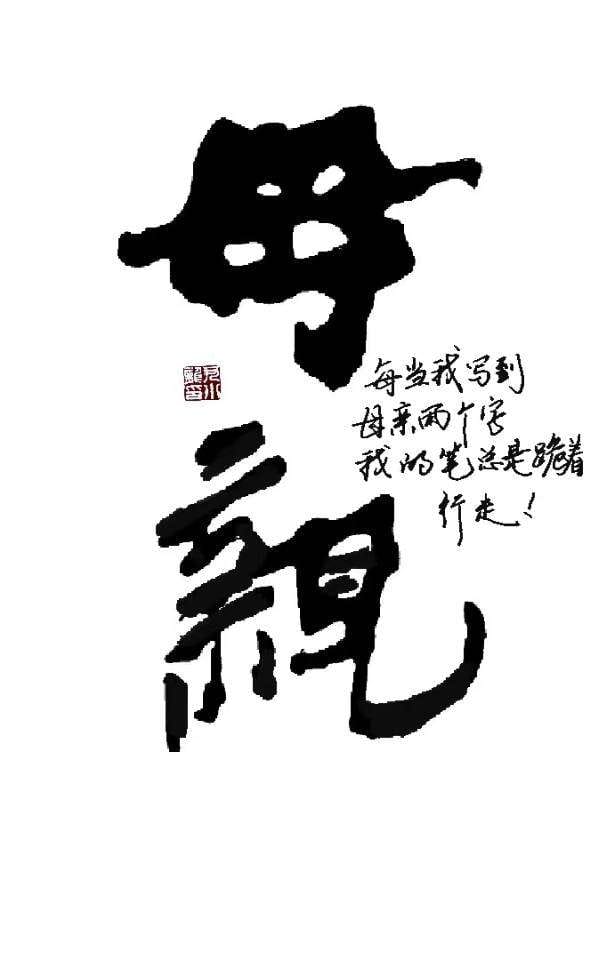 母
親
每当我写到
母亲两个字
我的笔总是跪着
行走！